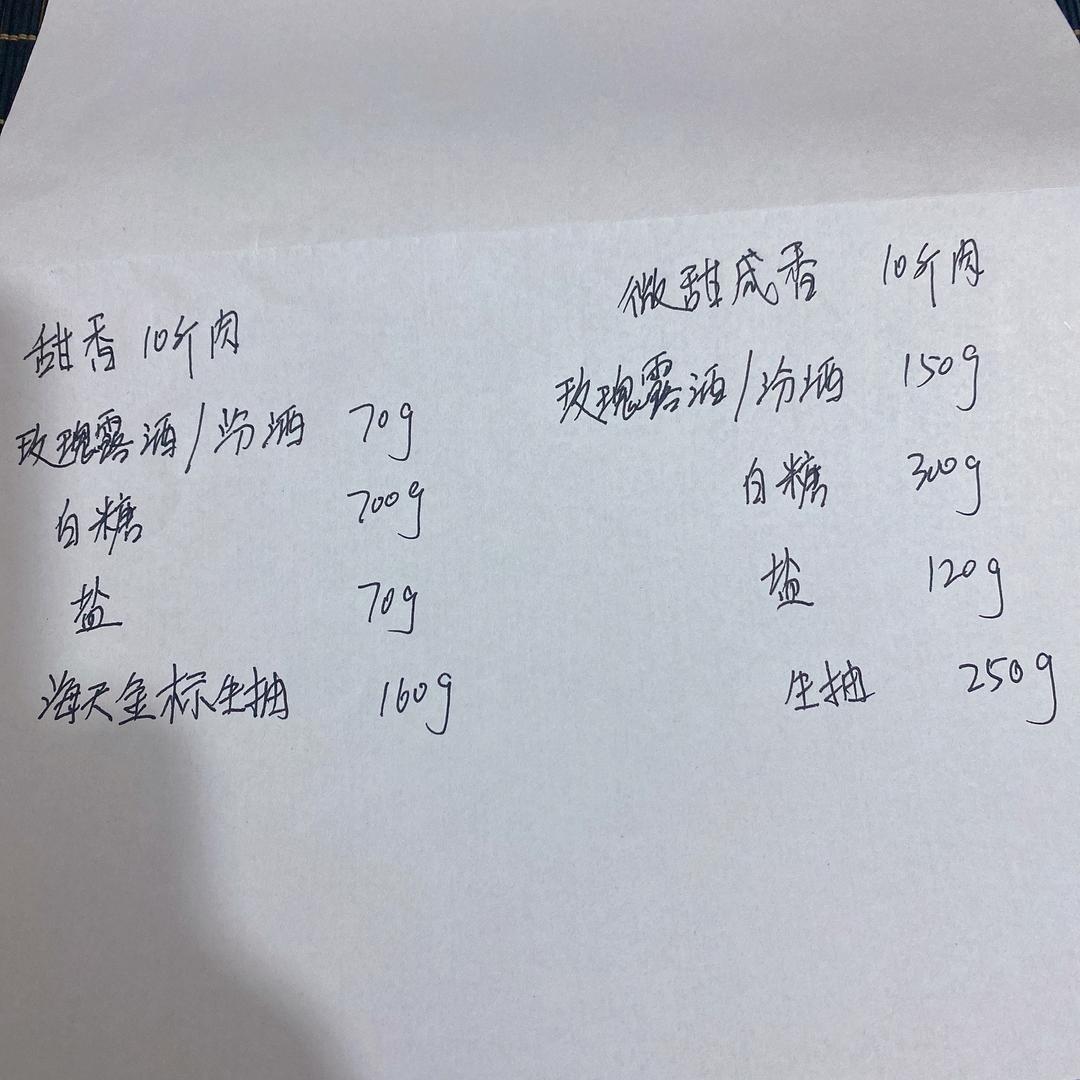 甜香 10斤肉
玫瑰露酒/汾酒 70g
白糖 700g
盐 70g
海天金标生抽 160g
微甜咸香 10斤肉
玫瑰露酒/汾酒 150g
白糖 300g
盐 120g
生抽 250g